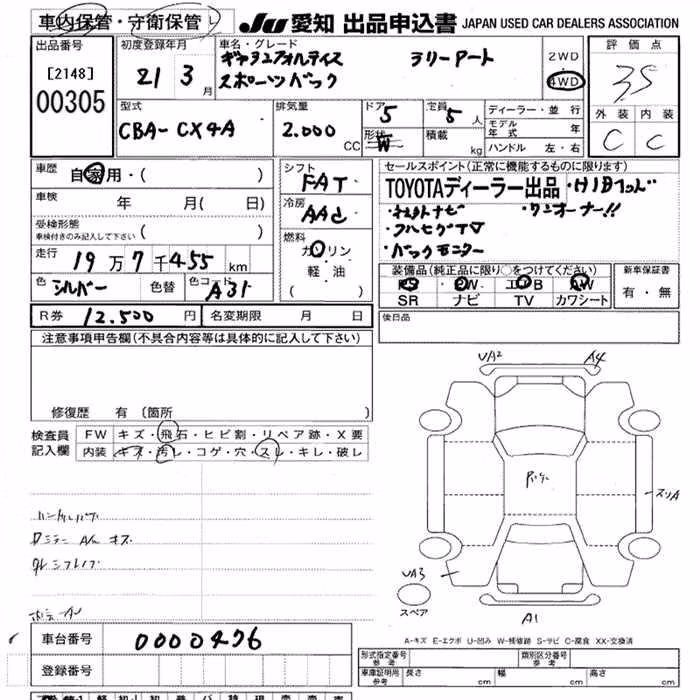 車内保管・守衛保管 し
JU 愛知 出品申込書 JAPAN USED CAR DEALERS ASSOCIATION
出品番号
[2148]
00305
初度登録年月
21 3 月
車名・グレード
ギャランフォルティス ラリーアート
スポーツバック
2WD
4WD
評価点
3.5
外装 内装
C C
型式
CBA-CX4A
排気量
2.000 CC
ドア 5
形状 W
定員 5 人
積載 kg
ディーラー・並行
モデル年式 年
ハンドル 左・右
車歴 自家用・( )
車検 年 月( 日)
受検形態
車検付きのみ記入して下さい ( )
走行 19 万 7 千 455 km
色 シルバー 色替 色コード A31
シフト
FAT
冷房
AAC
燃料
ガソリン
軽・油
( )
セールスポイント(正常に機能するものに限ります)
TOYOTAディーラー出品・HIDヘッド
・社外ナビ ・ワンオーナー!!
・フルセグTV
・バックモニター
装備品(純正品に限り○をつけてください)
PS PW エアB AW
SR ナビ TV カワシート
新車保証書
有・無
R券 12.500 円 名変期限 月 日
後日品
注意事項申告欄(不具合内容等は具体的に記入して下さい)
修復歴 有 〔箇所 〕
検査員記入欄
FW キズ・飛石・ヒビ割・リペア跡・X要
内装 キズ・汚レ・コゲ・穴・スレ・キレ・破レ
UA2 A4
スリA
UA3
A1
スペア
A-キズ E-エクボ U-凹み W-補修跡 S-サビ C-腐食 XX-交換済
車台番号 0000476
登録番号
型式指定番号 参考
類別区分番号 参考
車庫証明用 参考 長さ cm 幅 cm 高さ cm